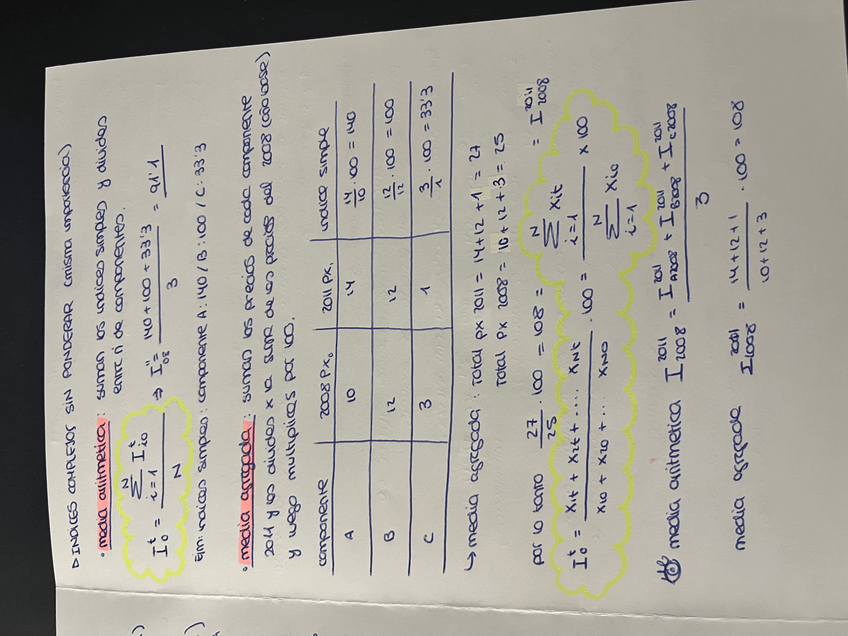 ▷ INDICES COMPLEJOS SIN PONDERAR (misma importancia)
• media aritmetica : suman los indices simples y divides
entre nº de componentes.
I₀ᵗ = Σ_{i=1}^{N} I_{i0}^{t} / N ⇒ I₀₈¹¹ = (140 + 100 + 33'3) / 3 = 91'1
Ejm: indices simples : componente A : 140 / B : 100 / C : 33'3
• media agregada : suman los precios de cada componente
2011 y los divides x la suma de los precios del 2008 (año base)
y luego multiplicas por 100.
componente | 2008 Px₀ | 2011 Px₁ | indice simple
A | 10 | 14 | 14/10 · 100 = 140
B | 12 | 12 | 12/12 · 100 = 100
C | 3 | 1 | 3/1 · 100 = 33'3
↳ media agregada : Total px 2011 = 14 + 12 + 1 = 27
Total Px 2008 = 10 + 12 + 3 = 25
por lo tanto 27/25 · 100 = 108 = = I_{2008}^{2011}
I₀ᵗ = (x₁t + x₂t + .... xNt) / (x₁₀ + x₂₀ + ... xN₀) · 100 = Σ_{i=1}^{N} Xit / Σ_{i=1}^{N} Xi₀ x 100
media aritmetica I_{2008}^{2011} = (I_{A2008}^{2011} + I_{B2008}^{2011} + I_{C2008}^{2011}) / 3
media agregada I_{2008} = (14 + 12 + 1) / (10 + 12 + 3) · 100 = 108